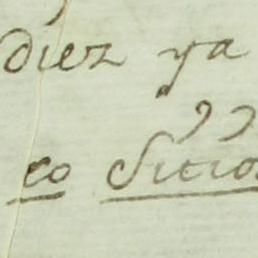 diez ya
co Sitios